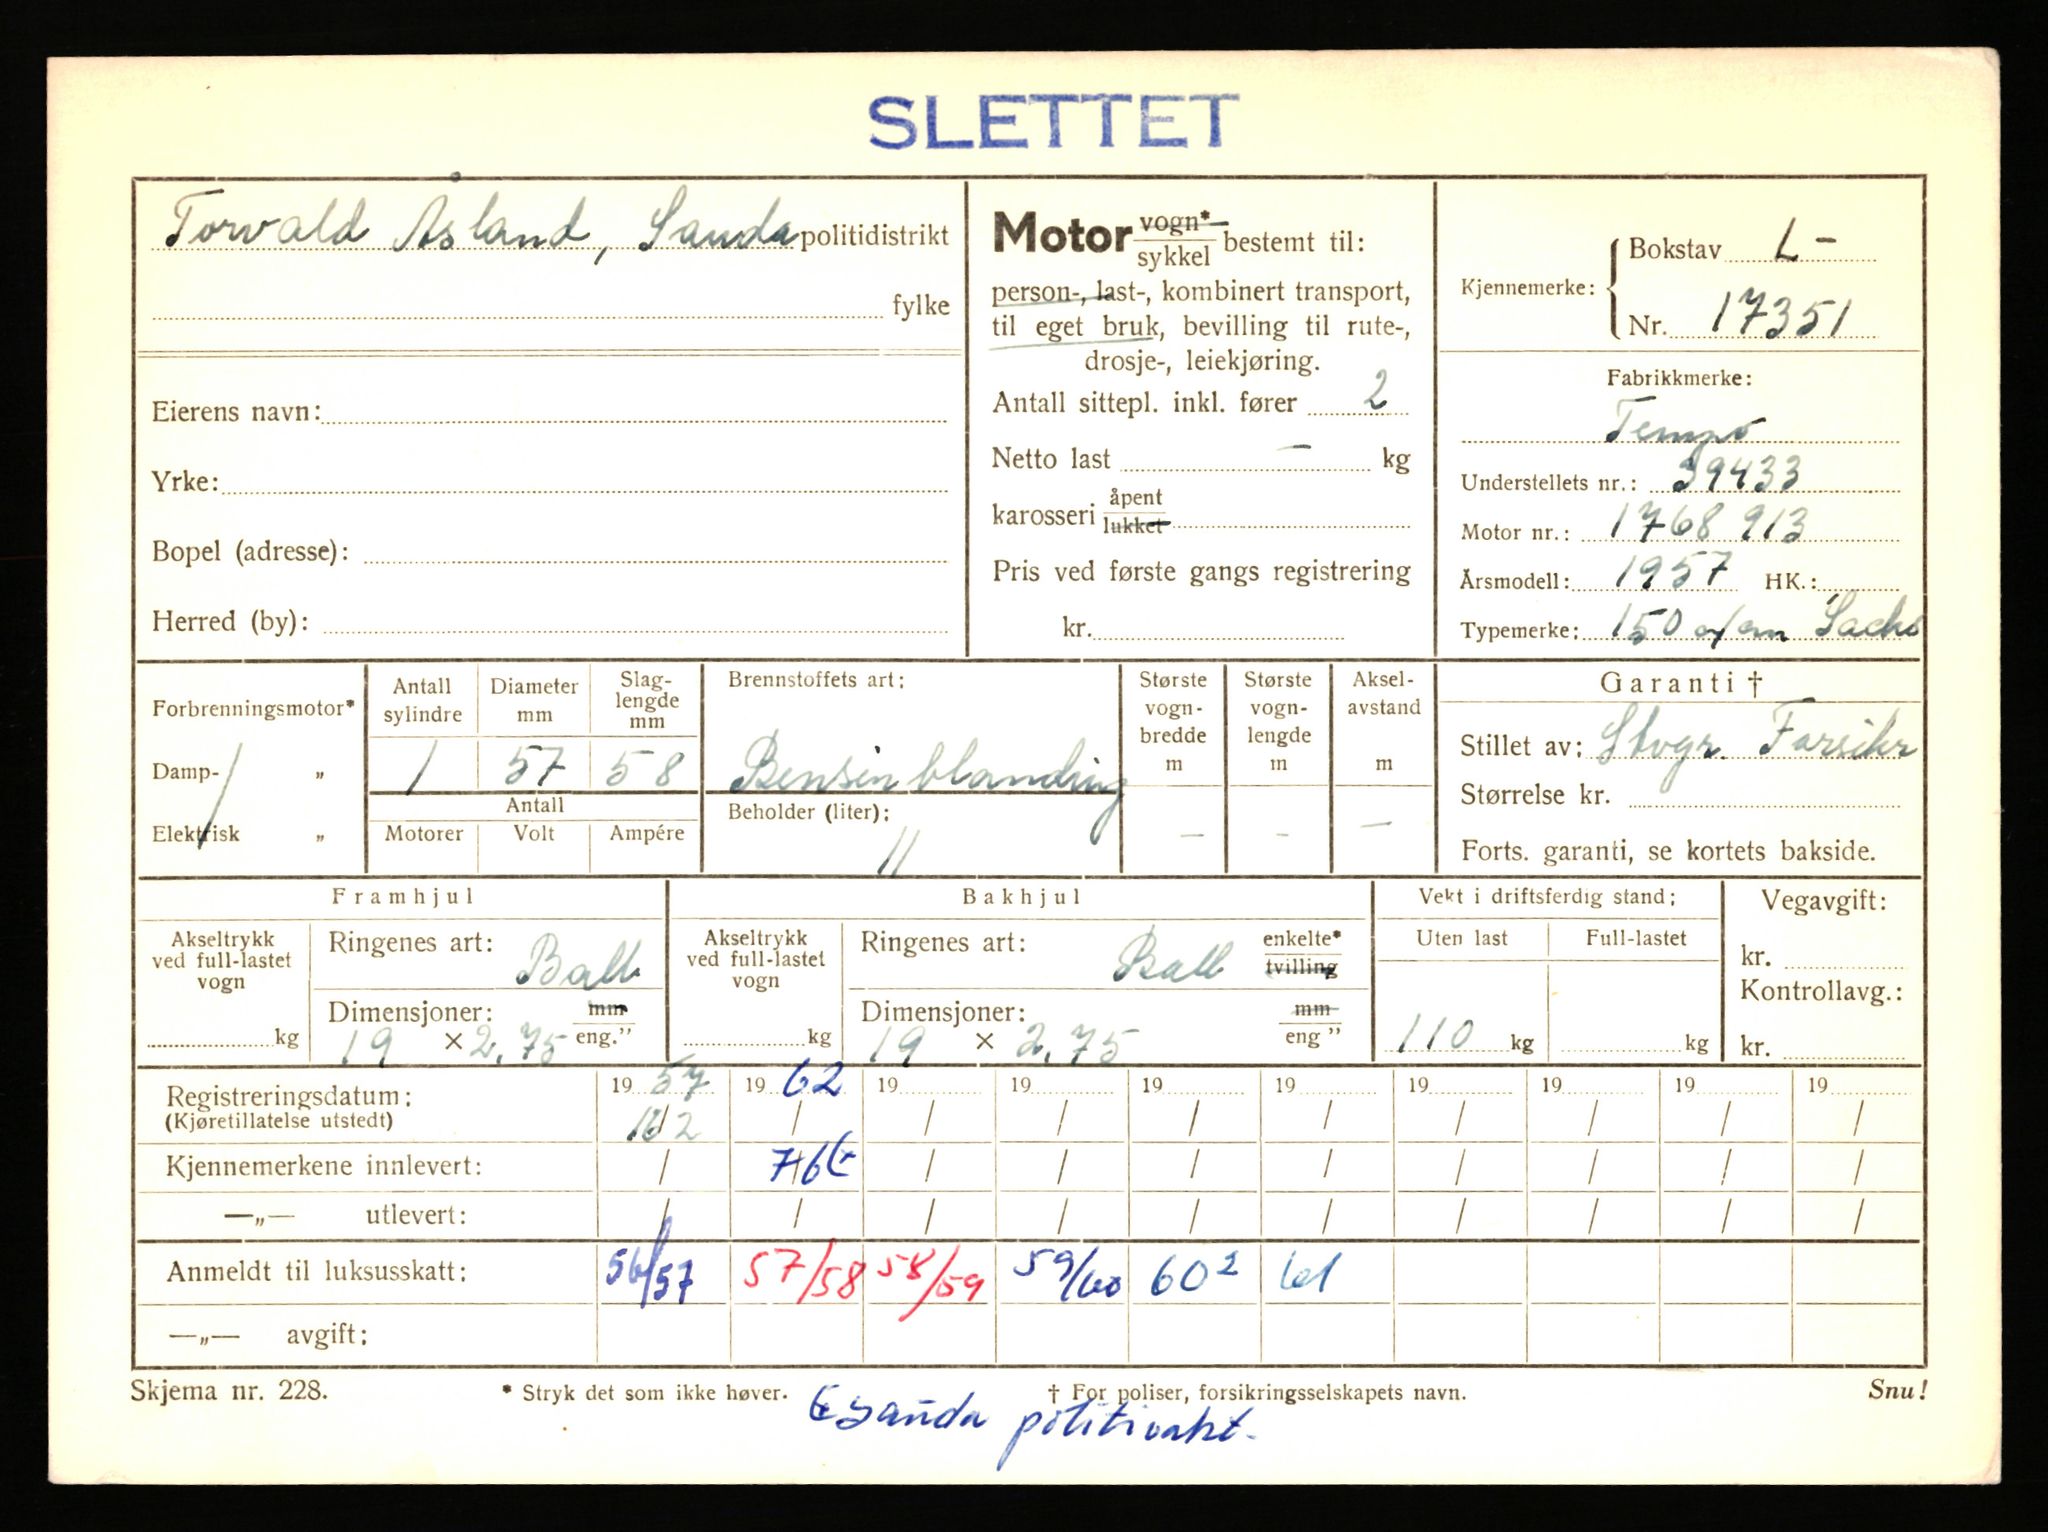 SLETTET
Torvald Åsland, Sauda politidistrikt
fylke
Eierens navn:
Yrke:
Bopel (adresse):
Herred (by):
Motor vogn* / sykkel bestemt til:
person-, last-, kombinert transport,
til eget bruk, bevilling til rute-,
drosje-, leiekjøring.
Antall sittepl. inkl. fører 2
Netto last — kg
karosseri åpent / lukket
Pris ved første gangs registrering
kr.
Kjennemerke: Bokstav L-
Nr. 17351
Fabrikkmerke:
Tempo
Understellets nr.: 39433
Motor nr.: 1768 913
Årsmodell: 1957 HK.:
Typemerke: 150 Sachs
Forbrenningsmotor*
Damp- „
Elektrisk „
Antall sylindre 1
Diameter mm 57
Slag-lengde mm 58
Antall
Motorer Volt Ampére
Brennstoffets art:
Bensinblanding
Beholder (liter):
11
Største vogn-bredde m —
Største vogn-lengde m -
Aksel-avstand m —
Garanti †
Stillet av: Stvgr. Forsikr
Størrelse kr.
Forts. garanti, se kortets bakside.
Framhjul
Akseltrykk ved full-lastet vogn
kg
Ringenes art: Ball
Dimensjoner: mm / eng.”
19 × 2,75
Bakhjul
Akseltrykk ved full-lastet vogn
kg
Ringenes art: Ball enkelte* / tvilling
Dimensjoner: mm / eng”
19 × 2,75
Vekt i driftsferdig stand:
Uten last Full-lastet
110 kg kg
Vegavgift:
kr.
Kontrollavg.:
kr.
Registreringsdatum: 19 57 19 62 19 19 19 19 19 19 19 19
(Kjøretillatelse utstedt) 16/2 / / / / / / / / /
Kjennemerkene innlevert: / 7/6 / / / / / / / /
—„— utlevert: / / / / / / / / / /
Anmeldt til luksusskatt: 56/57 57/58 58/59 59/60 60² 61
—„— avgift:
Skjema nr. 228.
* Stryk det som ikke høver.
† For poliser, forsikringsselskapets navn.
Snu!
Sauda politivakt.